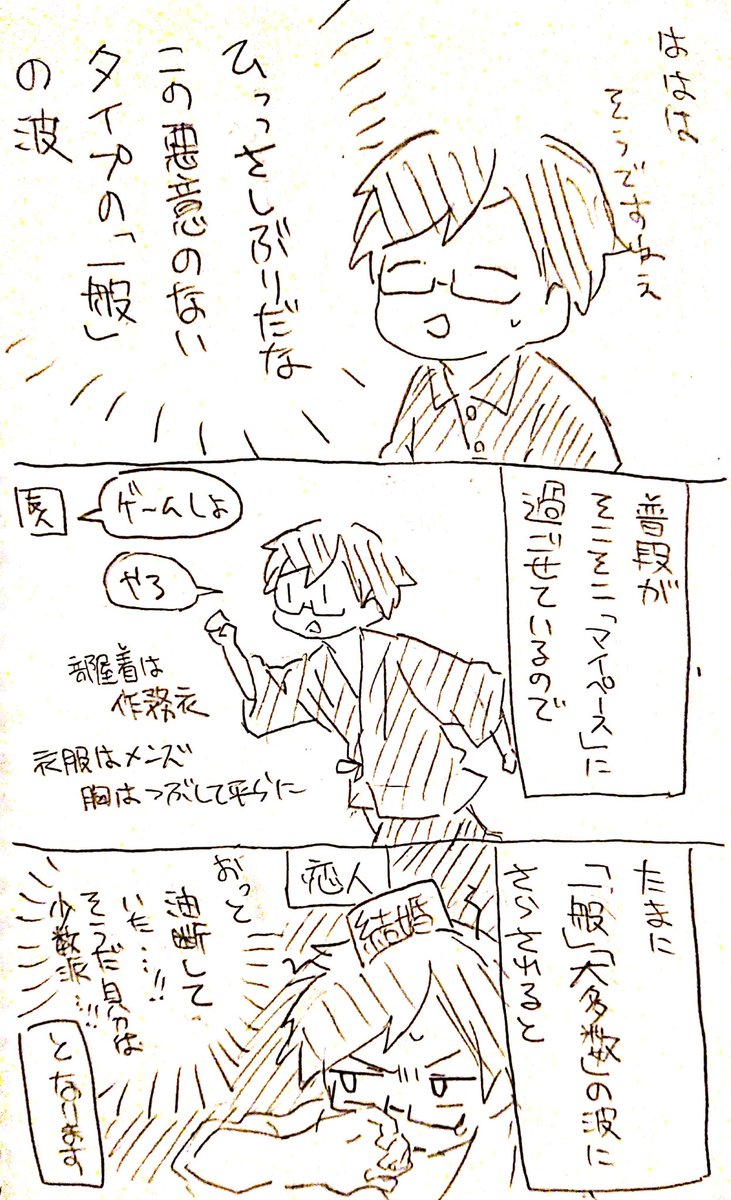 ははは
そうですねぇ
ひっっさしぶりだな
この悪意のない
タイプの「一般」
の波
普段が
そこそこ「マイペース」に
過ごせているので
ゲームしよ
やろ
部屋着は
作務衣
衣服はメンズ
胸はつぶして平らに
たまに
「一般」「大多数」の波に
さらされると
恋人
結婚
おっと
油断して
いた…!!
そうだ自分は
少数派…!!!
となります